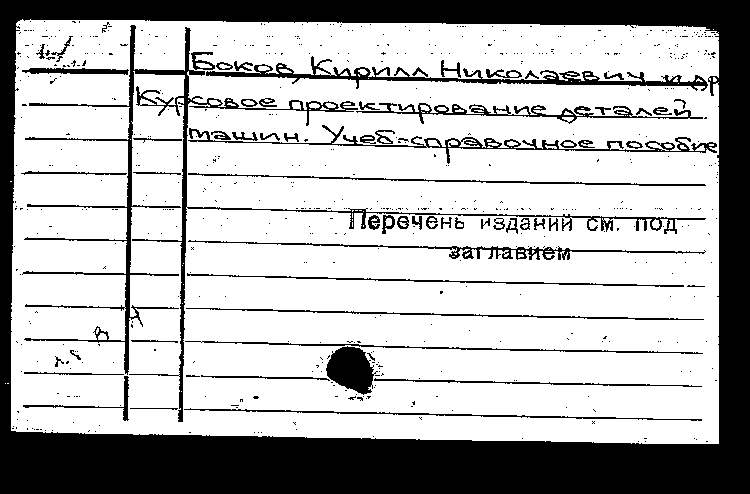 Боков, Кирилл Николаевич и др
Курсовое проектирование деталей
машин. Учеб-справочное пособие
Перечень изданий см. под
заглавием